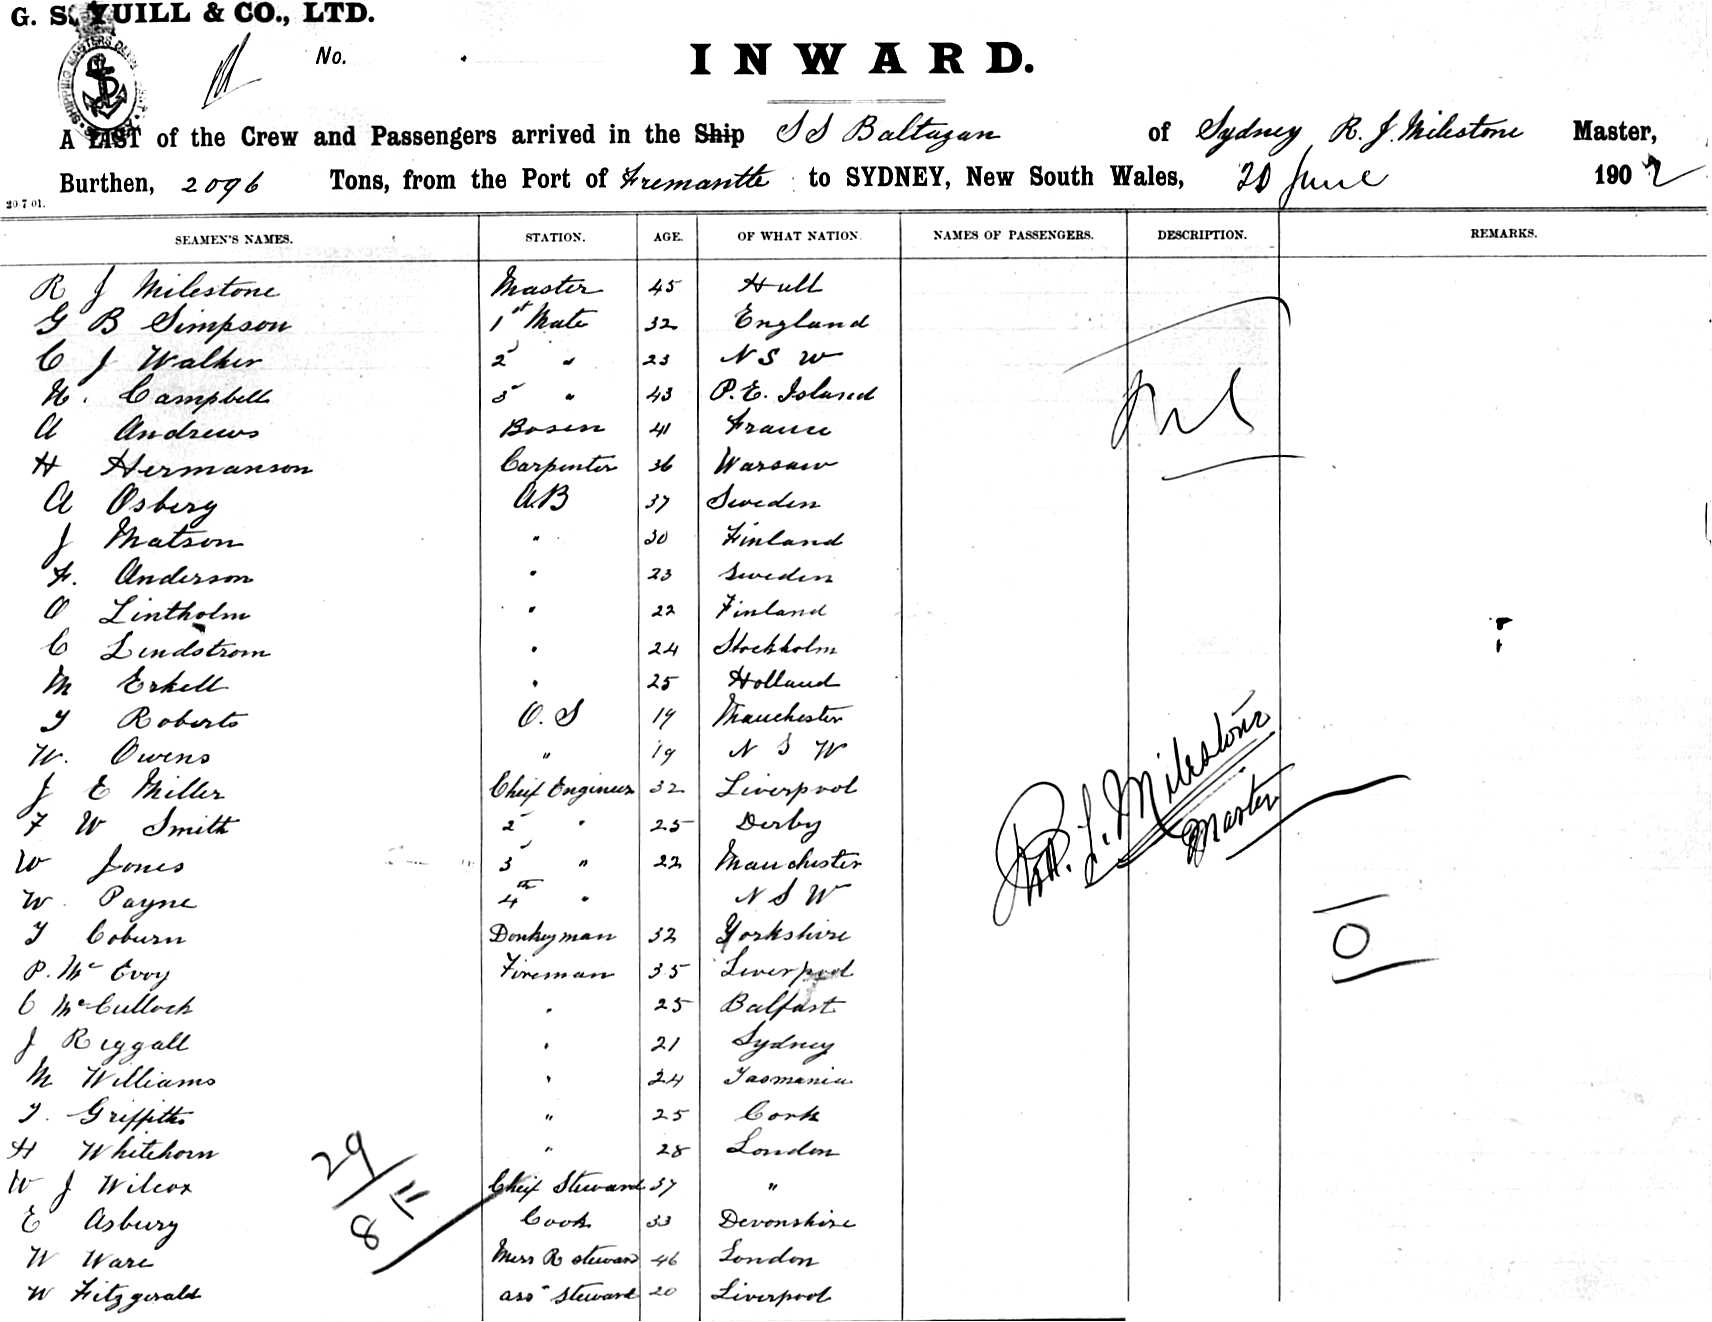 G. S. YUILL & CO., LTD.
No.
INWARD.
A LIST of the Crew and Passengers arrived in the Ship SS Baltazan of Sydney R. J. Milestone Master,
Burthen, 2096 Tons, from the Port of Fremantle to SYDNEY, New South Wales, 20 June 1902
20.7.01.
SEAMEN'S NAMES. STATION. AGE. OF WHAT NATION. NAMES OF PASSENGERS. DESCRIPTION. REMARKS.
R J Milestone Master 45 Hull
G B Simpson 1st Mate 32 England
C J Walker 2 " 23 N S W
N. Campbell 3 " 43 P. E. Island
A Andrews Bosen 41 France
H Hermanson Carpenter 36 Warsaw
A Osberg A.B 37 Sweden
J Matson " 30 Finland
F. Anderson " 23 Sweden
O Lintholm " 22 Finland
C Lindstrom " 24 Stockholm
M Erkell " 25 Holland
T Roberts O. S 19 Manchester
W. Owens " 19 N S W
J E Miller Cheif Engineer 32 Liverpool
F W Smith 2 " 25 Derby
W Jones 3 " 22 Manchester
W. Payne 4th " N S W
T Coburn Donkeyman 32 Yorkshire
P. Mc Evoy Fireman 35 Liverpool
C McCulloch " 25 Balfast
J Riggall " 21 Sydney
M Williams " 24 Tasmania
T. Griffiths " 25 Cork
H Whitehorn " 28 London
W J Wilcox Cheif Steward 37 "
E Asbury Cook 33 Devonshire
W Ware Mess R steward 46 London
W Fitzgerald ass steward 20 Liverpool
Nil
R. J. Milestone
Master
0
29
8 11